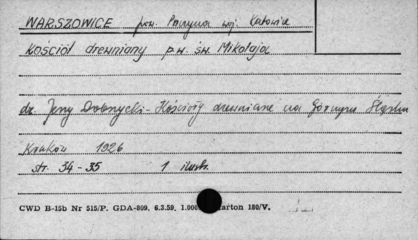 WARSZOWICE pow. Pszczyna woj. Katowice
Kościół drewniany p.w. św. Mikołaja
dr. Jerzy Dobrzycki - Kościoły drewniane na Górnym Śląsku
Kraków 1926
str. 34-35 1 ilustr.
CWD B-15b Nr 515/P. GDA-809. 6.3.59. 1.000 karton 180/V.